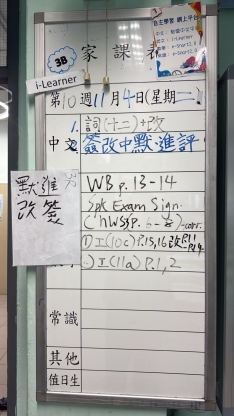 自主學習 網上平台
3B
家課表
i-Learner
第10週11月4日(星期二)
中文
1. 詞(十二)+改
2. 簽改中默進評
默進
改簽
WB p. 13-14
Spk Exam Sign.
① I(10c) P.15,16 改P.11
I(11a) P.1, 2
常識
其他
值日生